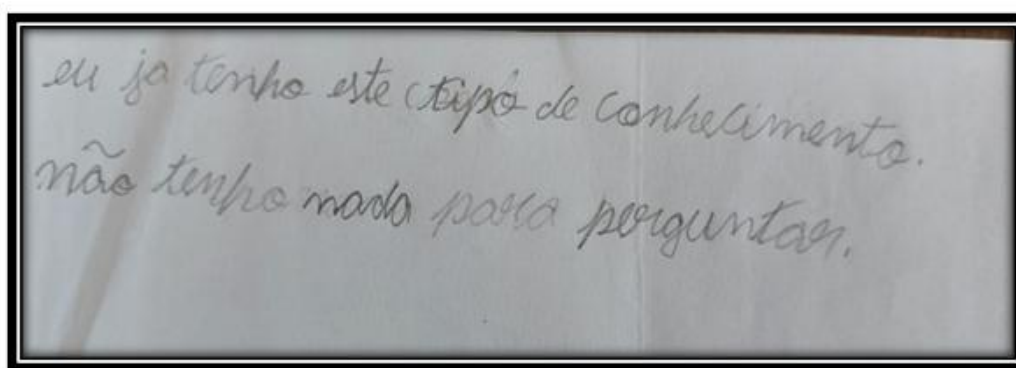 eu ja tenho este tipo de conhecimento.
não tenho nada para perguntar.